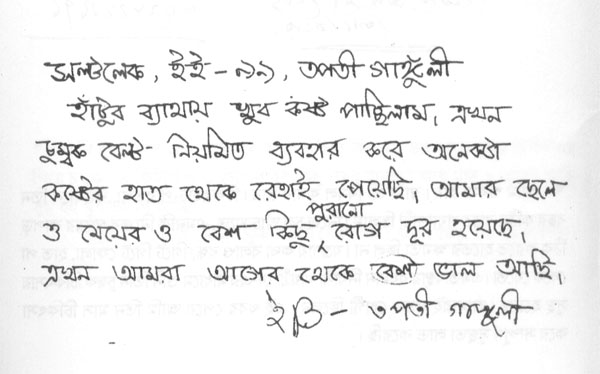 সল্টলেক, ইই-৯৯, তপতী গাঙ্গুলী
হাঁটুর ব্যাথায় খুব কষ্ট পাচ্ছিলাম, এখন
চুম্বক বেল্ট নিয়মিত ব্যবহার করে অনেকটা
কষ্টের হাত থেকে রেহাই পেয়েছি, আমার ছেলে
ও মেয়ের ও বেশ কিছু পুরানো রোগ দূর হয়েছে,
এখন আমরা আগের থেকে বেশী ভাল আছি,
ইতি - তপতী গাঙ্গুলী